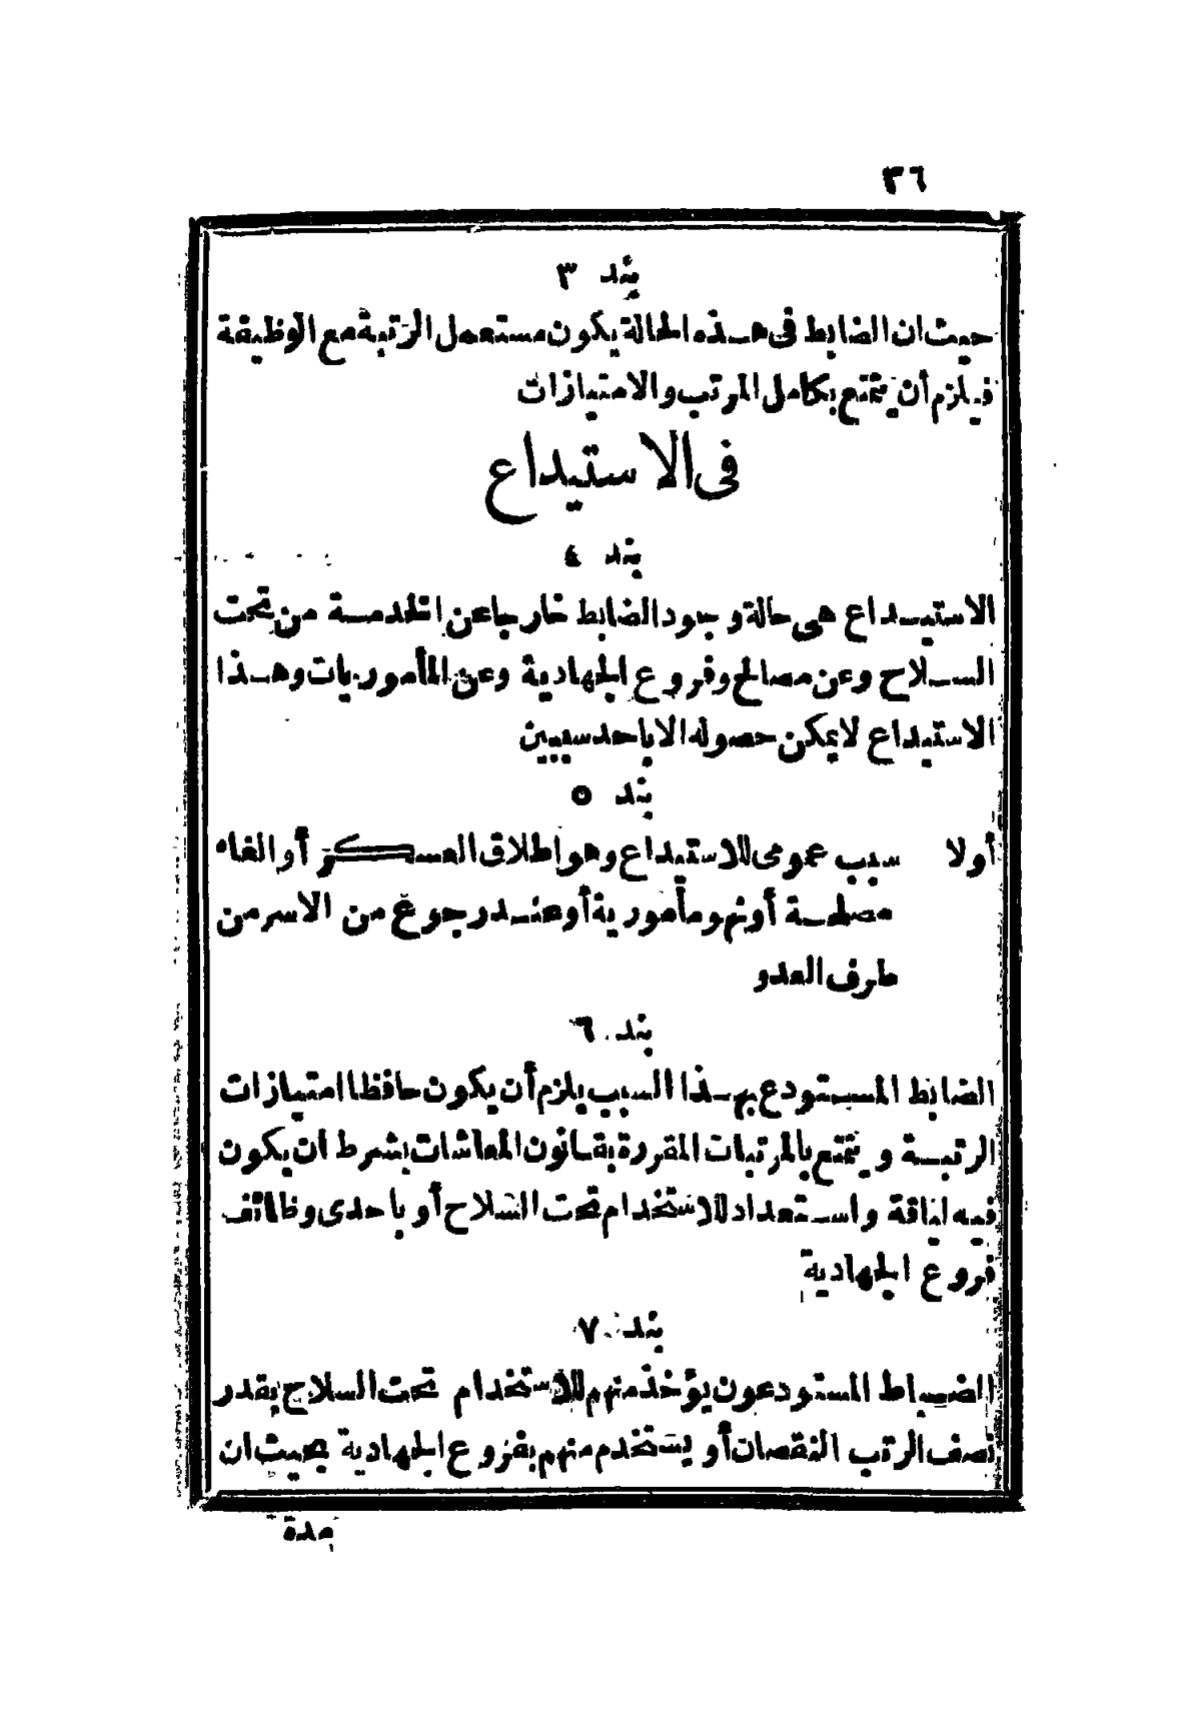 ٣٦
بند ٣
حيث ان الضابط فى هذه الحالة يكون مستعمل الرتبة مع الوظيفة
فيلزم أن يتمتع بكامل المرتب والامتيازات
فى الاستيداع
بند ٤
الاستيداع هى حالة وجود الضابط خارجا عن الخدمة من تحت
السلاح وعن مصالح وفروع الجهادية وعن المأموريات وهذا
الاستيداع لا يمكن حصوله الا باحد سببين
بند ٥
أولا سبب عمومى للاستيداع وهو اطلاق العسكر أو الغاء
مصلحة أو نهو مأمورية أو عند رجوع من الاسر من
طرف العدو
بند ٦
الضابط المستودع بهذا السبب يلزم أن يكون حافظا امتيازات
الرتبة ويتمتع بالمرتبات المقررة بقانون المعاشات بشرط ان يكون
فيه لياقة واستعداد للاستخدام تحت السلاح أو باحدى وظائف
فروع الجهادية
بند ٧
الضباط المستودعون يؤخذ منهم للاستخدام تحت السلاح بقدر
نصف الرتب النقصان أو يستخدم منهم بفروع الجهادية بحيث ان
مدة